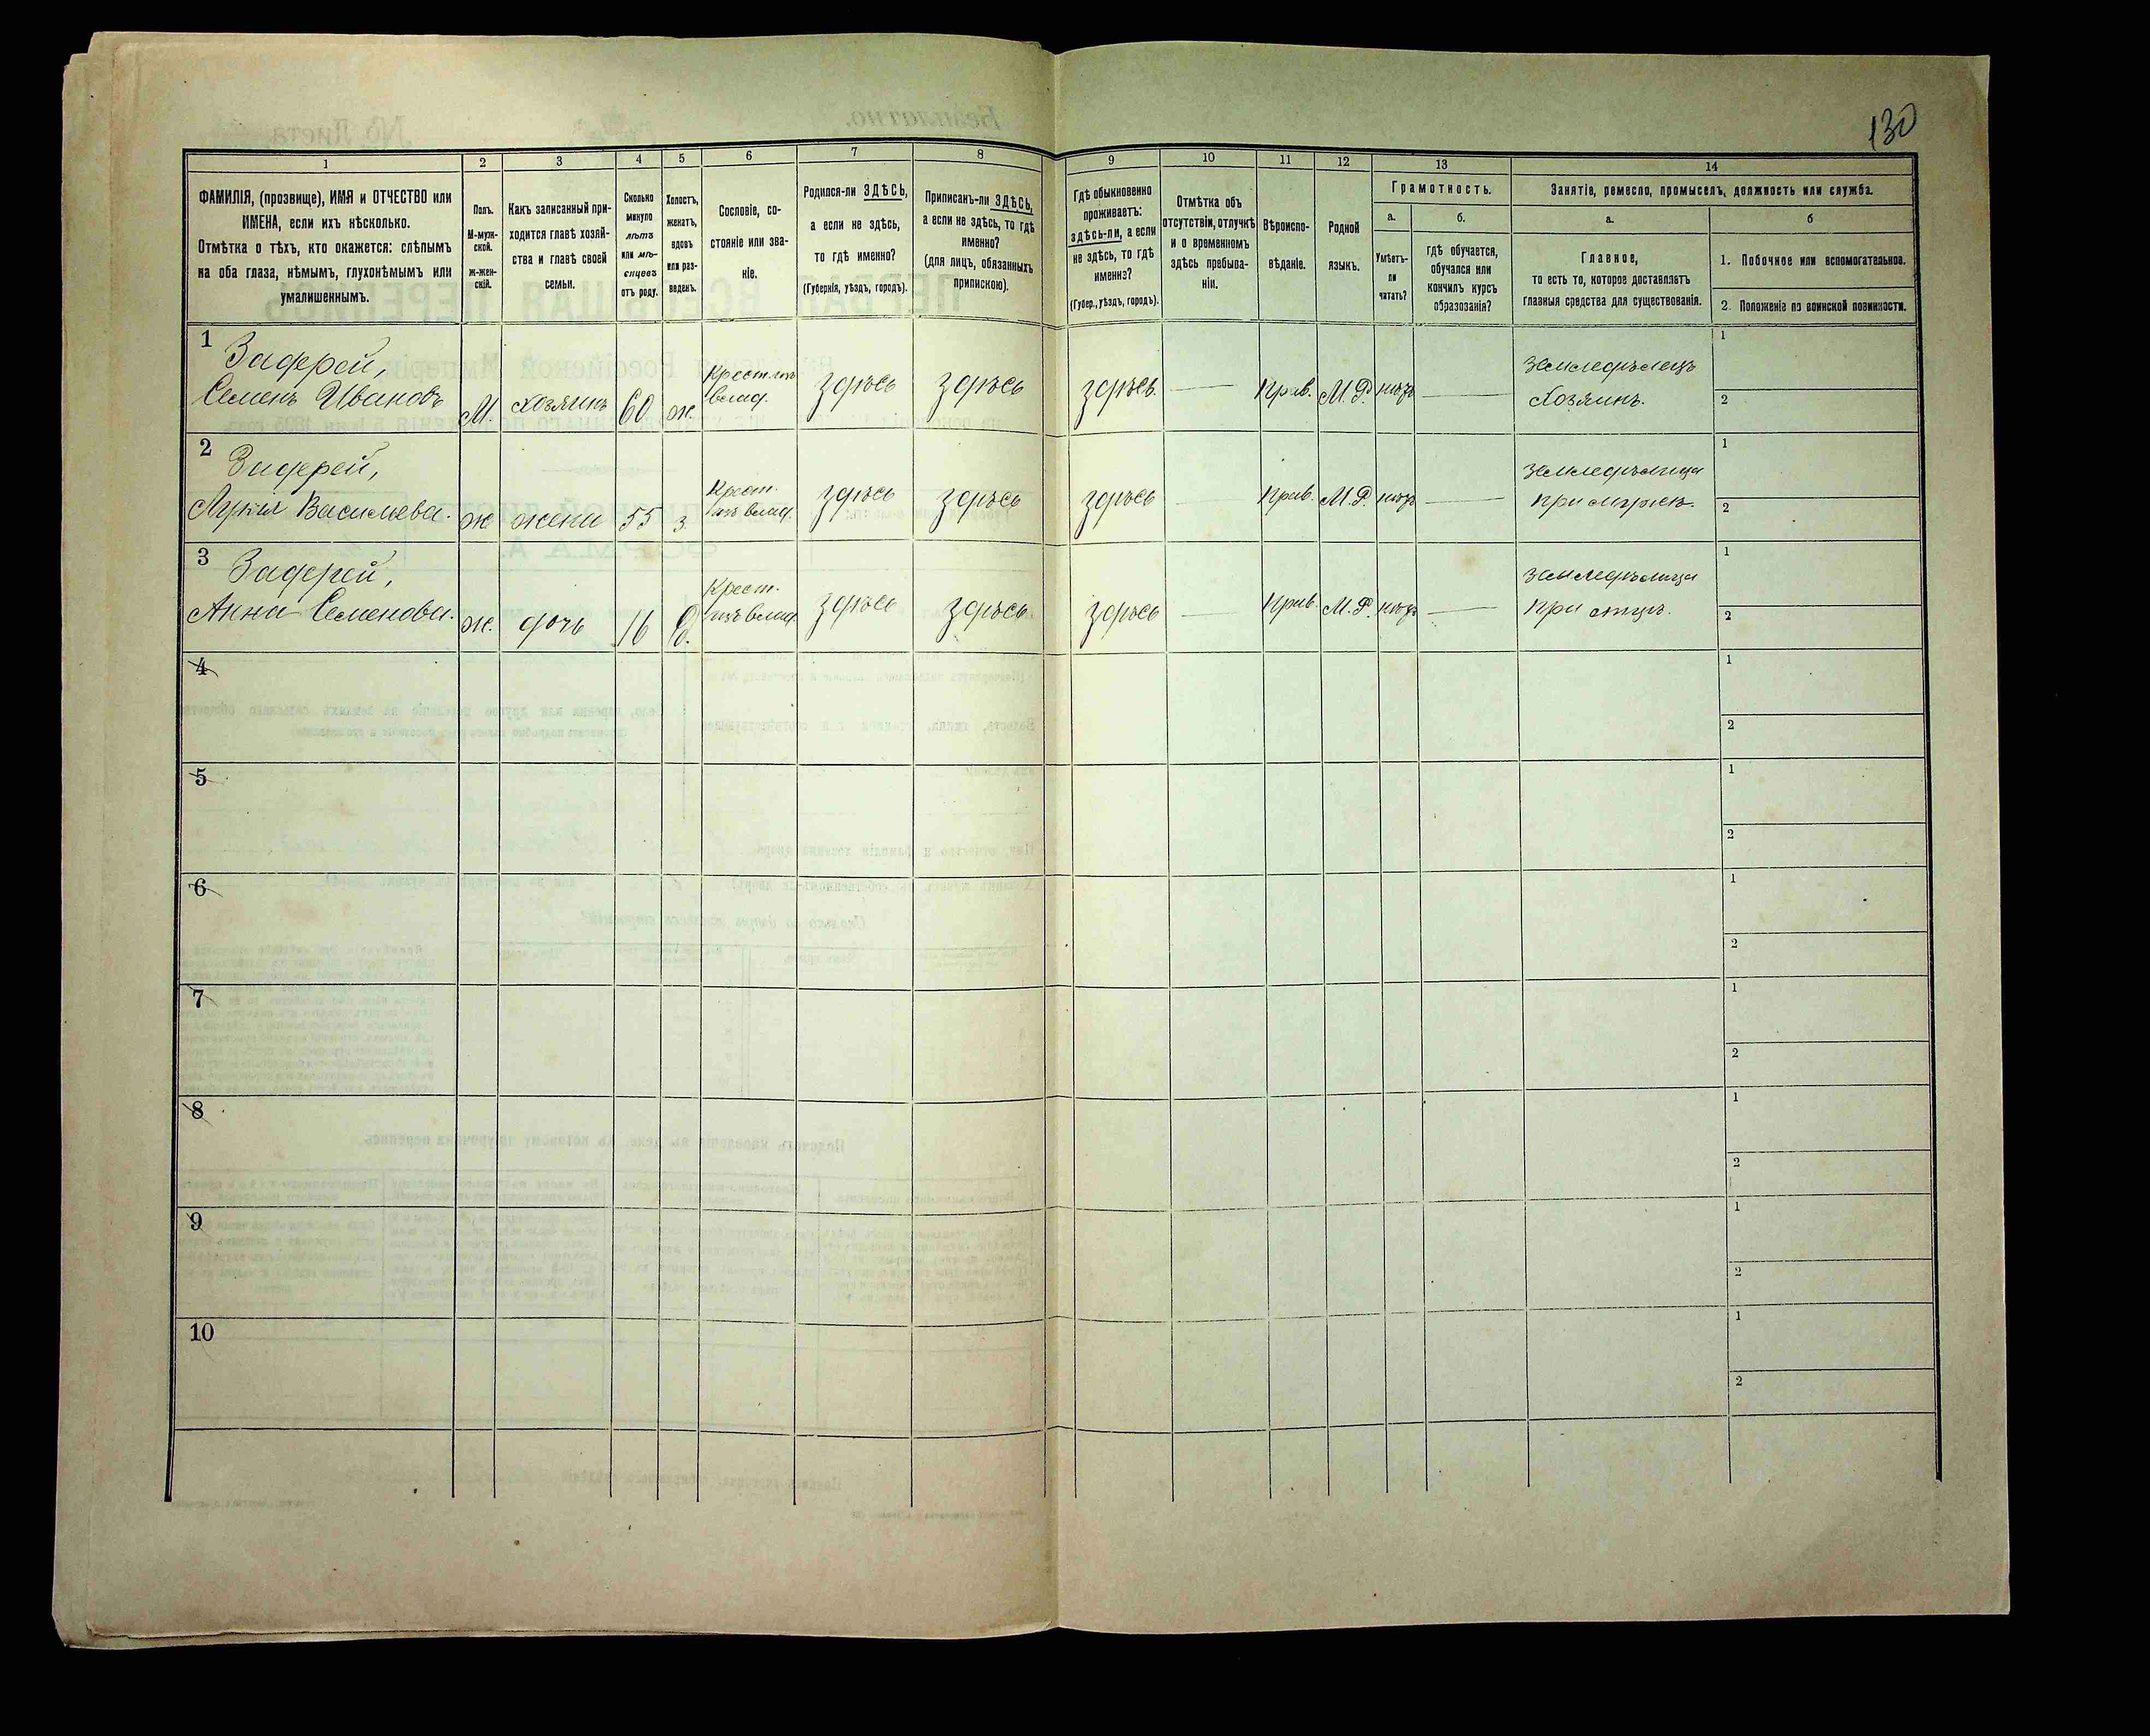 130
1
2
3
4
5
6
7
8
9
10
11
12
13
14
ФАМИЛІЯ, (прозвище), ИМЯ и ОТЧЕСТВО или
ИМЕНА, если ихъ нѣсколько.
Отмѣтка о тѣхъ, кто окажется: слѣпымъ
на оба глаза, нѣмымъ, глухонѣмымъ или
умалишеннымъ.
Полъ.
М-муж-
ской.
ж-жен-
скій.
Какъ записанный при-
ходится главѣ хозяй-
ства и главѣ своей
семьи.
Сколько
минуло
лѣтъ
или мѣ-
сяцевъ
отъ роду.
Холостъ,
женатъ,
вдовъ
или раз-
веденъ.
Сословіе, со-
стояніе или зва-
ніе.
Родился-ли ЗДѢСЬ,
а если не здѣсь,
то гдѣ именно?
(Губернія, уѣздъ, городъ).
Приписанъ-ли ЗДѢСЬ,
а если не здѣсь, то гдѣ
именно?
(для лицъ, обязанныхъ
припискою).
Гдѣ обыкновенно
проживаетъ:
здѣсь-ли, а если
не здѣсь, то гдѣ
именно?
(Губер., уѣздъ, городъ).
Отмѣтка объ
отсутствіи, отлучкѣ
и о временномъ
здѣсь пребыва-
ніи.
Вѣроиспо-
вѣданіе.
Родной
языкъ.
Грамотность.
а.
Умѣетъ-
ли
читать?
б.
гдѣ обучается,
обучался или
кончилъ курсъ
образованія?
Занятіе, ремесло, промыселъ, должность или служба.
а.
Главное,
то есть то, которое доставляетъ
главныя средства для существованія.
б
1. Побочное или вспомогательное.
2. Положеніе по воинской повинности.
1
Задерей,
Семенъ Ивановъ
М. хозяинъ 60 ж.
Крест. изъ
влад.
здѣсь здѣсь здѣсь. — Прав. М.Р. нѣтъ
земледѣлецъ
Хозяинъ.
1
2
2
Задерей,
Лукія Васильева.
ж жена 55 з.
Крест.
изъ влад.
здѣсь здѣсь здѣсь — Прав. М.Р. нѣтъ —
земледѣлица
при мужѣ.
1
2
3
Задерей,
Анна Семенова.
ж. дочь 16 д.
Крест.
изъ влад.
здѣсь здѣсь здѣсь — Прав. М.Р. нѣтъ —
земледѣлица
при отцѣ.
1
2
4
1
2
5
1
2
6
1
2
7
1
2
8
1
2
9
1
2
10
1
2